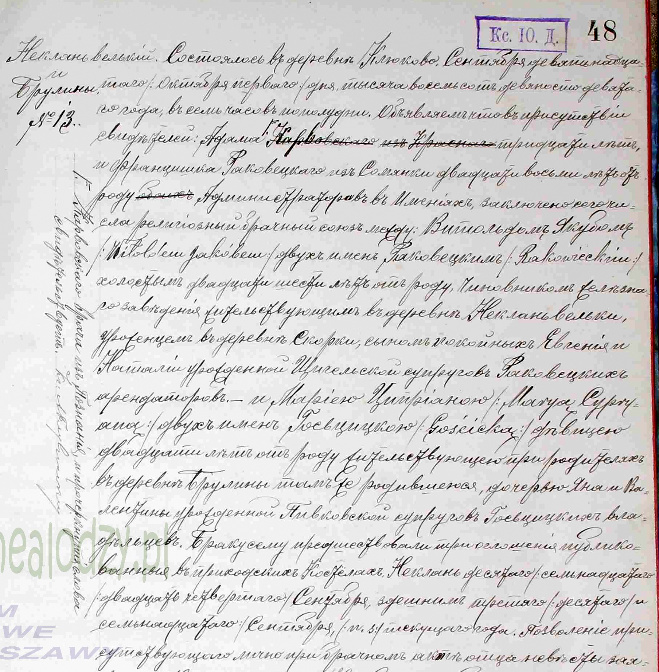 Кс. Ю. Д. 48
Неклань велький. Состоялось въ деревнѣ Клюково, Сентября девятнадца-
и Брулины таго /: Октября перваго :/ дня, тысяча восемьсотъ девяносто девята-
№ 13. го года, въ семь часовъ пополудни. Объявляемъ что въ присутствіи
свидѣтелей: Адама Карвовскаго изъ тридцати лѣтъ,
и Францишка Раковецкаго изъ двадцати восьми лѣтъ отъ
роду Администраторовъ въ Имѣніяхъ, заключено сего чи-
сла религіозный брачный союзъ между: Витольдомъ Якубомъ
/: Witoldem Jakóbem :/ двухъ именъ Раковецкимъ /: Rakowieckim :/
холостымъ двадцати шести лѣтъ отъ роду, Чиновникомъ
жительствующимъ въ деревнѣ Неклань вельки,
уроженцемъ въ деревнѣ Скорки, сыномъ покойныхъ Евгенія и
Наталіи урожденной супруговъ Раковецкихъ
арендаторовъ. — и Маріею Ципріаною /: Marya Cypry-
ana :/ двухъ именъ Госьцицкою /: Gościcka :/ дѣвицею
двадцати лѣтъ отъ роду жительствующею при родителяхъ
въ деревнѣ Брулины тамъ же родившеюся, дочерью Яна и Ва-
лентины урожденной Пивковской супруговъ Госьцицкихъ вла-
дѣльцевъ. Браку сему предшествовали три оглашенія публико-
ванныя въ приходскихъ Костелахъ, Неклань десятаго / семнадцатаго
/: двадцать четвертаго :/ Сентября, здѣшнимъ третьяго / десятаго / и
семьнадцатаго / Сентября, текущаго года. Позволеніе при-
сутствующаго лично при брачномъ актѣ отца новобрачная
Г. Карвовскаго врача изъ
свидѣтельствуетъ.
nealodzy.pl